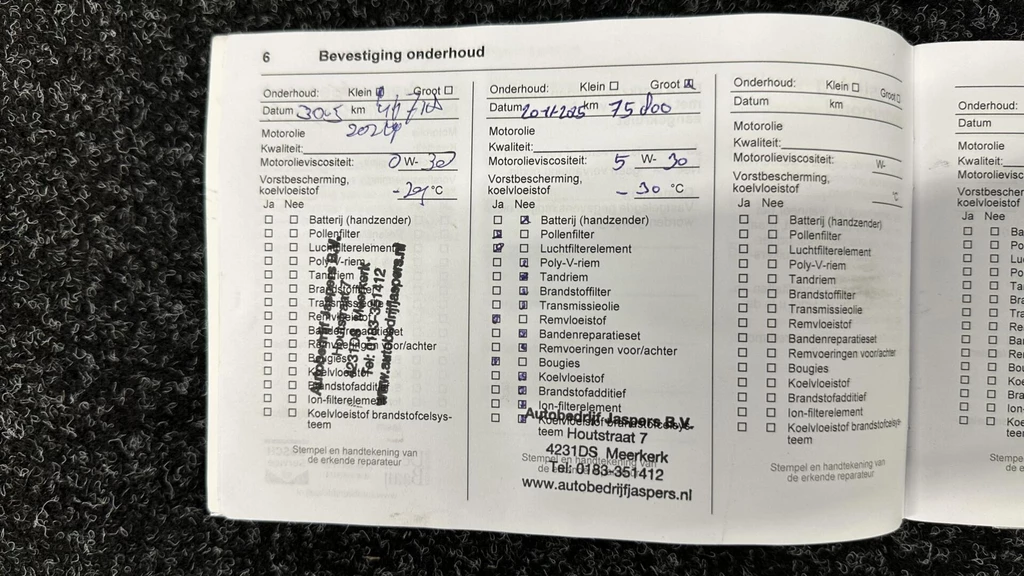 6 Bevestiging onderhoud
Onderhoud: Klein Groot
Datum km
2024
Motorolie
Kwaliteit:
Motorolieviscositeit: 0 W- 30
Vorstbescherming,
koelvloeistof -29 °C
Ja Nee
Batterij (handzender)
Pollenfilter
Luchtfilterelement
Poly-V-riem
Tandriem
Brandstoffilter
Transmissieolie
Remvloeistof
Bandenreparatieset
Remvoeringen voor/achter
Bougies
Koelvloeistof
Brandstofadditief
Ion-filterelement
Koelvloeistof brandstofcelsys-
teem
Autobedrijf Jaspers B.V.
Houtstraat 7
4231DS Meerkerk
Tel: 0183-351412
www.autobedrijfjaspers.nl
Stempel en handtekening van
de erkende reparateur
Onderhoud: Klein Groot
Datum km 75000
Motorolie
Kwaliteit:
Motorolieviscositeit: 5 W- 30
Vorstbescherming,
koelvloeistof - 30 °C
Ja Nee
Batterij (handzender)
Pollenfilter
Luchtfilterelement
Poly-V-riem
Tandriem
Brandstoffilter
Transmissieolie
Remvloeistof
Bandenreparatieset
Remvoeringen voor/achter
Bougies
Koelvloeistof
Brandstofadditief
Ion-filterelement
Koelvloeistof brandstofcelsys-
teem
Autobedrijf Jaspers B.V.
Houtstraat 7
4231DS Meerkerk
Tel: 0183-351412
www.autobedrijfjaspers.nl
Stempel en handtekening van
de erkende
Onderhoud: Klein Groot
Datum km
Motorolie
Kwaliteit:
Motorolieviscositeit: W-
Vorstbescherming,
koelvloeistof °C
Ja Nee
Batterij (handzender)
Pollenfilter
Luchtfilterelement
Poly-V-riem
Tandriem
Brandstoffilter
Transmissieolie
Remvloeistof
Bandenreparatieset
Remvoeringen voor/achter
Bougies
Koelvloeistof
Brandstofadditief
Ion-filterelement
Koelvloeistof brandstofcelsys-
teem
Stempel en handtekening van
de erkende reparateur
Onderhoud:
Datum
Motorolie
Kwaliteit:
Motorolieviscos
Vorstbescher
koelvloeistof
Ja Nee
Ba
Po
Lu
Po
Ta
Br
Tra
Re
Ba
Re
Bo
Ko
Bra
Ion
Ko
tee
Ste